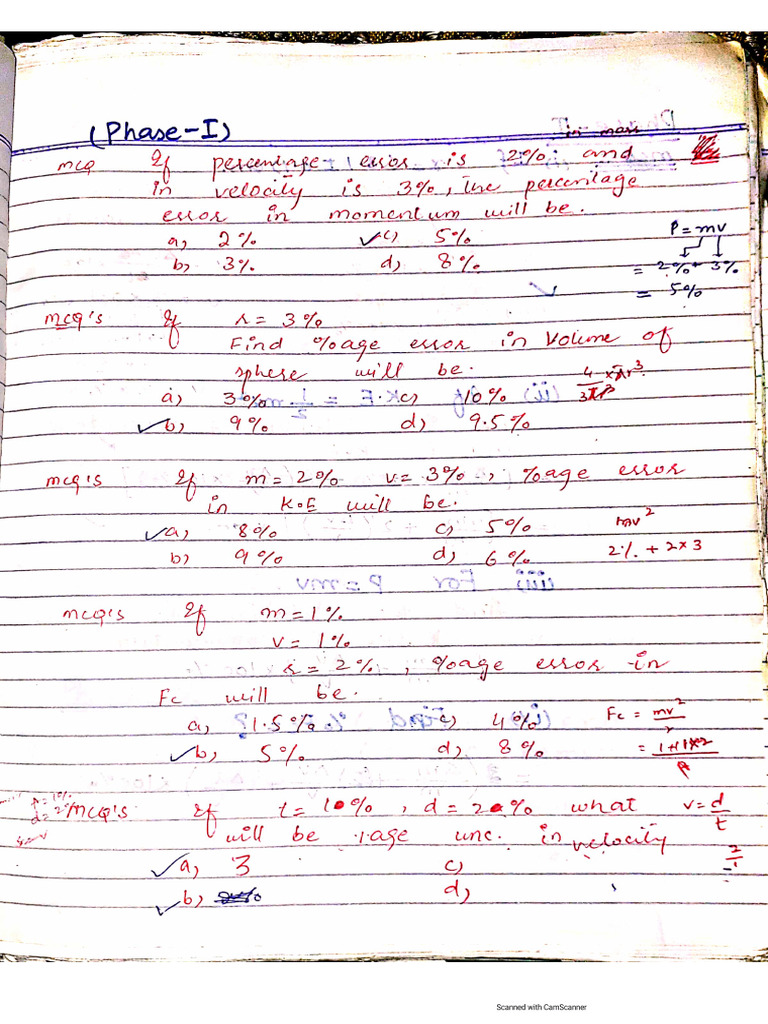 (Phase-I)
in mass
mcq If percentage error is 2% and
in velocity is 3%, the percentage
error in momentum will be.
a, 2% ✓c, 5%
b, 3% d, 8%
P = mv
= 2% + 3%
= 5%
mcq's If r = 3%
Find %age error in Volume of
sphere will be.
a, 3% c, 10%
✓b, 9% d, 9.5%
mcq's If m = 2% v = 3%, %age error
in K.E will be.
✓a, 8% c, 5%
b, 9% d, 6%
mv²
2% + 2×3
mcq's If m = 1%
v = 1%
r = 2%, %age error in
Fc will be.
a, 1.5% c, 4%
✓b, 5% d, 8%
Fc = mv²/r
mcq's If t = 1%, d = 2% what
will be %age unc. in velocity
v = d/t
✓a, 3 c,
✓b, d,
Scanned with CamScanner